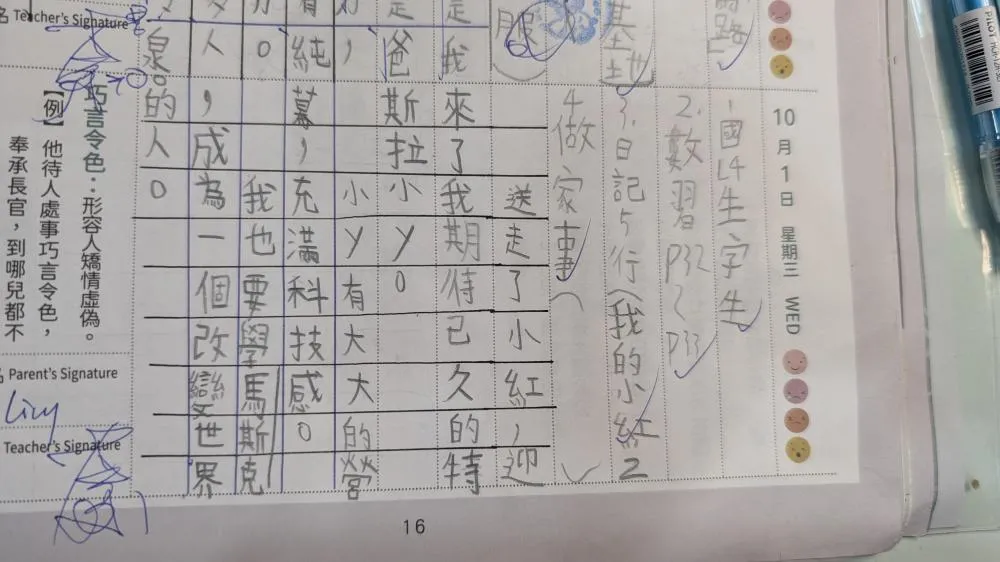 路
基地
服
是我
是爸
，
有純
。
人
泉。
Teacher's Signature
10月1日 星期三 WED
1.國L4生字生
2.數習P32~P33
3.日記5行(我的小紅2
4做家事( )
送走了小紅，迎
來了我期待已久的特
斯拉小丫。
小丫有大大的螢
幕，充滿科技感。
我也要學馬斯克
，成為一個改變世界
的人。
巧言令色：形容人矯情虛偽。
【例】他待人處事巧言令色，
奉承長官，到哪兒都不
Parent's Signature
Teacher's Signature
16